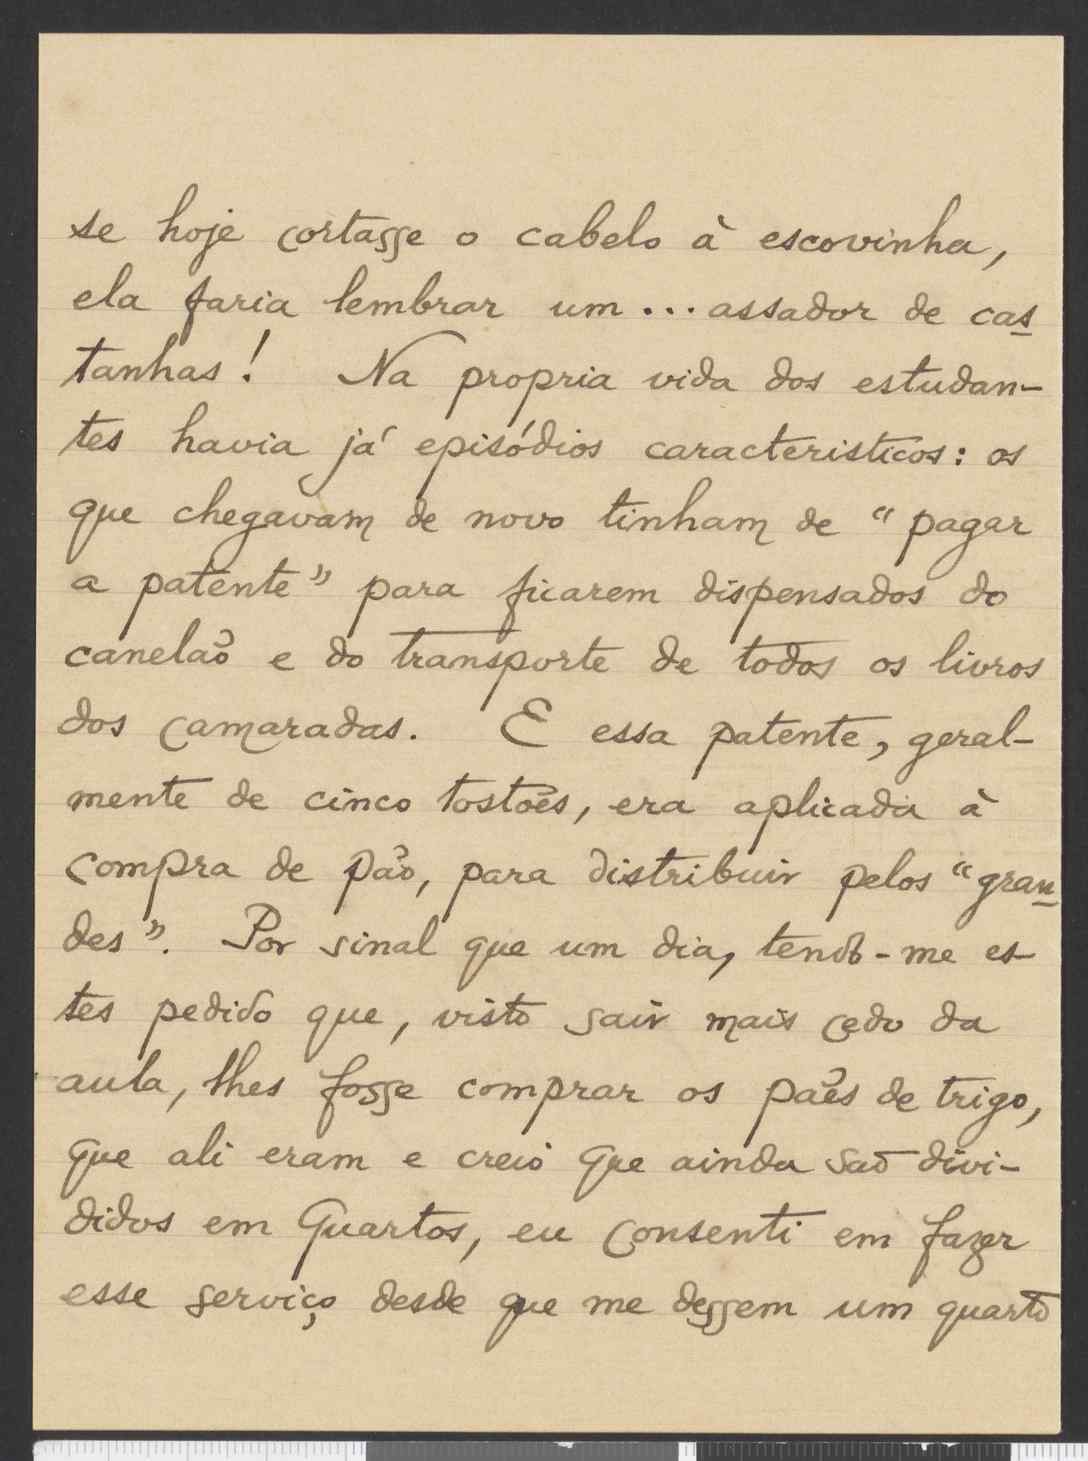 se hoje cortasse o cabelo à escovinha,
ela faria lembrar um... assador de cas
tanhas! Na propria vida dos estudan-
tes havia já episódios caracteristicos: os
que chegavam de novo tinham de "pagar
a patente" para ficarem dispensados do
canelão e do transporte de todos os livros
dos camaradas. E essa patente, geral-
mente de cinco tostões, era aplicada à
compra de pão, para distribuir pelos "gran
des". Por sinal que um dia, tendo-me es-
tes pedido que, visto sair mais cedo da
aula, lhes fosse comprar os pães de trigo,
que ali eram e creio que ainda são divi-
didos em quartos, eu consenti em fazer
esse serviço desde que me dessem um quarto